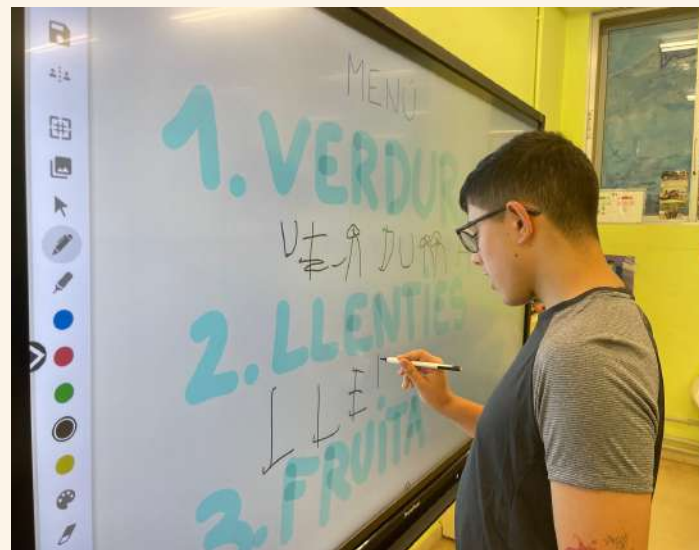 MENÚ
1. VERDUR
VERDURA
2. LLENTIES
LLE
3. FRUITA